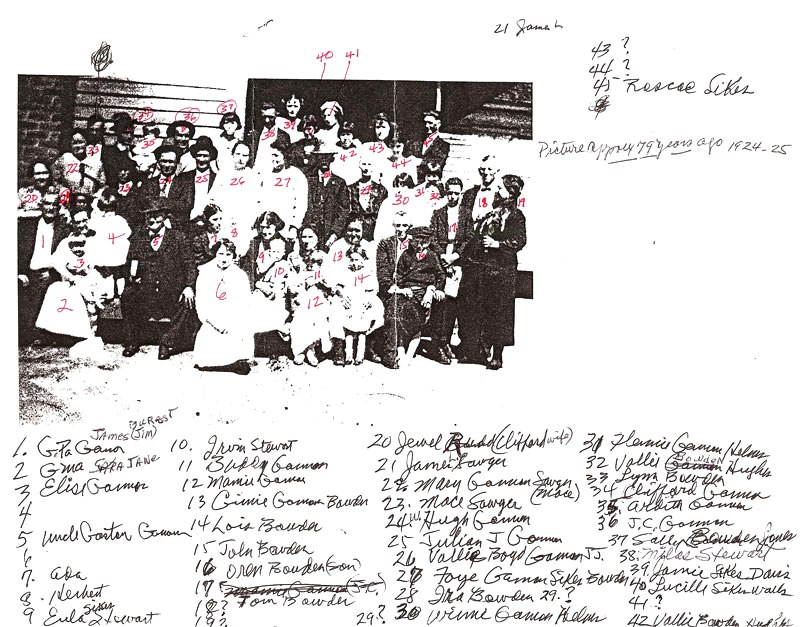 21 James L
43 ?
44 ?
45 Roscoe Sikes
Picture approx 79 years ago 1924-25
40 41
37
38 39
42 43
44
22
25
26 27
30
20
18 19
1
4
5
8
9
10
13
14
3
6
12
2
JAMES (Jim)
1. G.Pa Ganon
2 Gma SARA JANE
3 Elise Gannon
4
5 uncle Gaston Gannon
6
7. Ada
8. Herbert
9 Eula Stewart
10. Irvin Stewart
11 Buddy Gannon
12 Mamie Gannon
13 Ginnie Gannon Bowden
14 Lois Bowden
15 John Bowden
16 Oren Bowden (son)
17
18? Tom Bowden
19?
29?
20 Jewel (Clifford wife)
21 James Sawyer
22. Mary Gannon Sawyer (Mace)
23. Mace Sawyer
24 Hugh Gannon
25 Julian J Gannon
26 Vallie Boyd Gannon JJ.
27 Faye Gannon Sikes Bowden
28 Ira Bowden 29. ?
30 Vernie Gannon Helms
31 Flonnie Gannon Helms
32 Vallie Bowden Hughes
33 Lynn Bowden
34 Clifford Gannon
35. Gannon
36 J.C. Gannon
37 Sally Bowden Jones
38. Milas Stewart
39 Jamie Sikes Davis
40 Lucille Sikes Walls
41 ?
42 Vallie Bowden Hughes